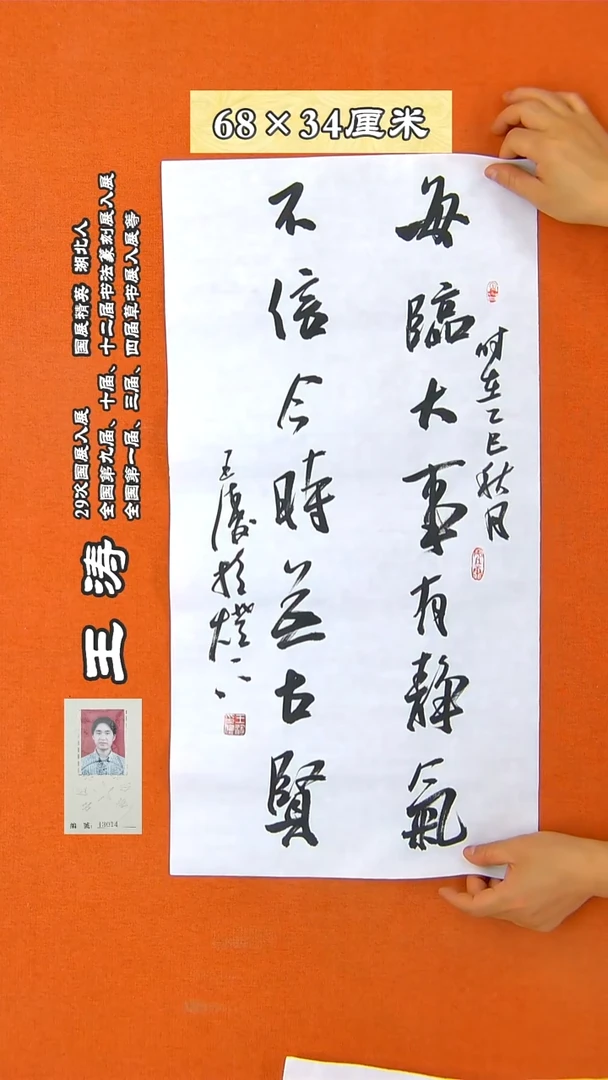 68×34厘米
每臨大事有靜氣
不信今時無古賢
时在乙巳秋月
王涛於燈下
王涛
29次国展入展 国展精英 湖北人
全国第九届、十届、十二届书法篆刻展入展
全国第一届、三届、四届草书展入展等
编号：13014